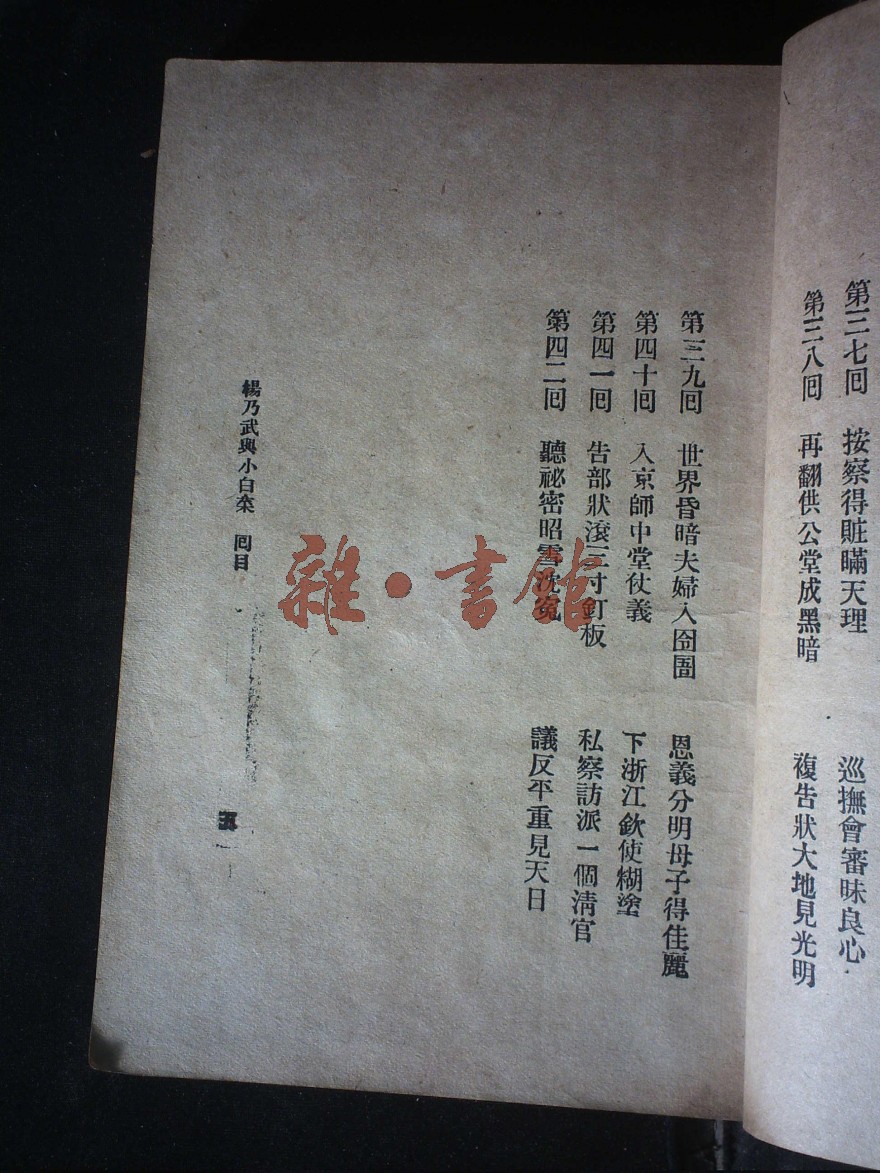 第三七回 按察得賍瞞天理 巡撫會審昧良心
第三八回 再翻供公堂成黑暗 複告狀大地見光明
第三九回 世界昏暗夫婦入囹圄 恩義分明母子得佳麗
第四十回 入京師中堂仗義 下浙江欽使糊塗
第四一回 告部狀滾三寸釘板 私察訪派一個淸官
第四二回 聽祕密昭雪沈冤 議反平重見天日
楊乃武與小白菜 囘目
五
雜·書館